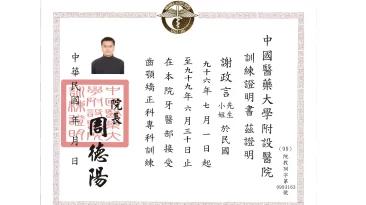 中國醫藥大學附設醫院
訓練證明書 茲證明
(99)院教別字第0993163號
謝政言先生小姐於民國
九十六年七月一日起
至九十九年六月三十日止
在本院牙醫部接受
齒顎矯正科專科訓練
院長 周德陽
中華民國 年 月 日